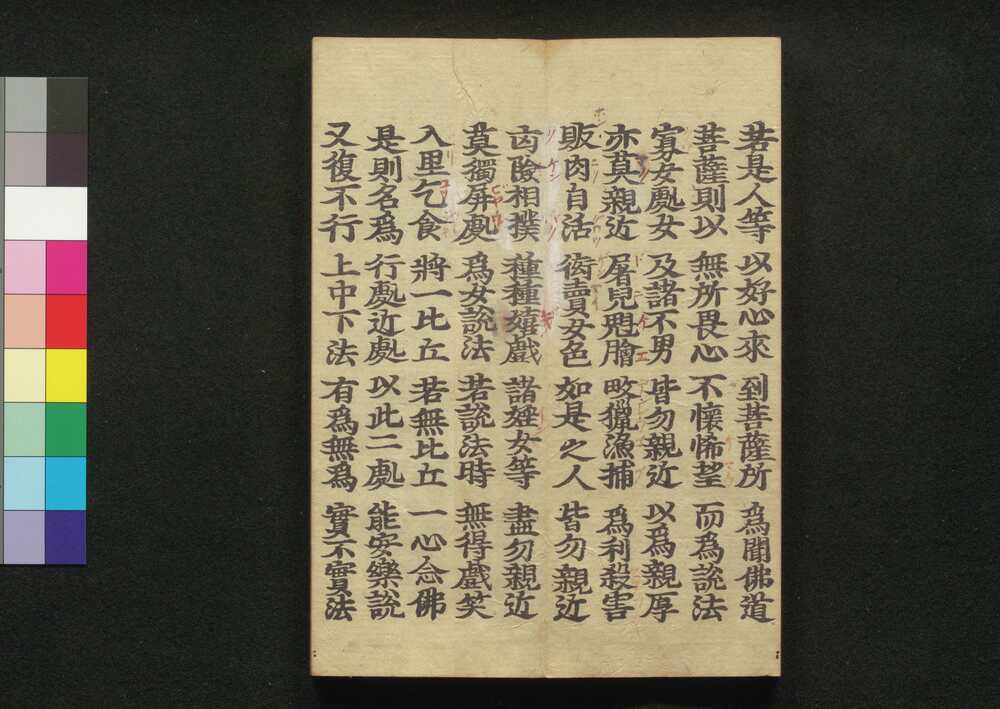 若是人等 以好心來 到菩薩所 為聞佛道
菩薩則以 無所畏心 不懷悕望 而為說法
寡女處女 及諸不男 皆勿親近 以為親厚
亦莫親近 屠兒魁膾 畋獵漁捕 為利殺害
販肉自活 衒賣女色 如是之人 皆勿親近
凶險相撲 種種嬉戲 諸婬女等 盡勿親近
莫獨屏處 為女說法 若說法時 無得戲笑
入里乞食 將一比丘 若無比丘 一心念佛
是則名為 行處近處 以此二處 能安樂說
又復不行 上中下法 有為無為 實不實法